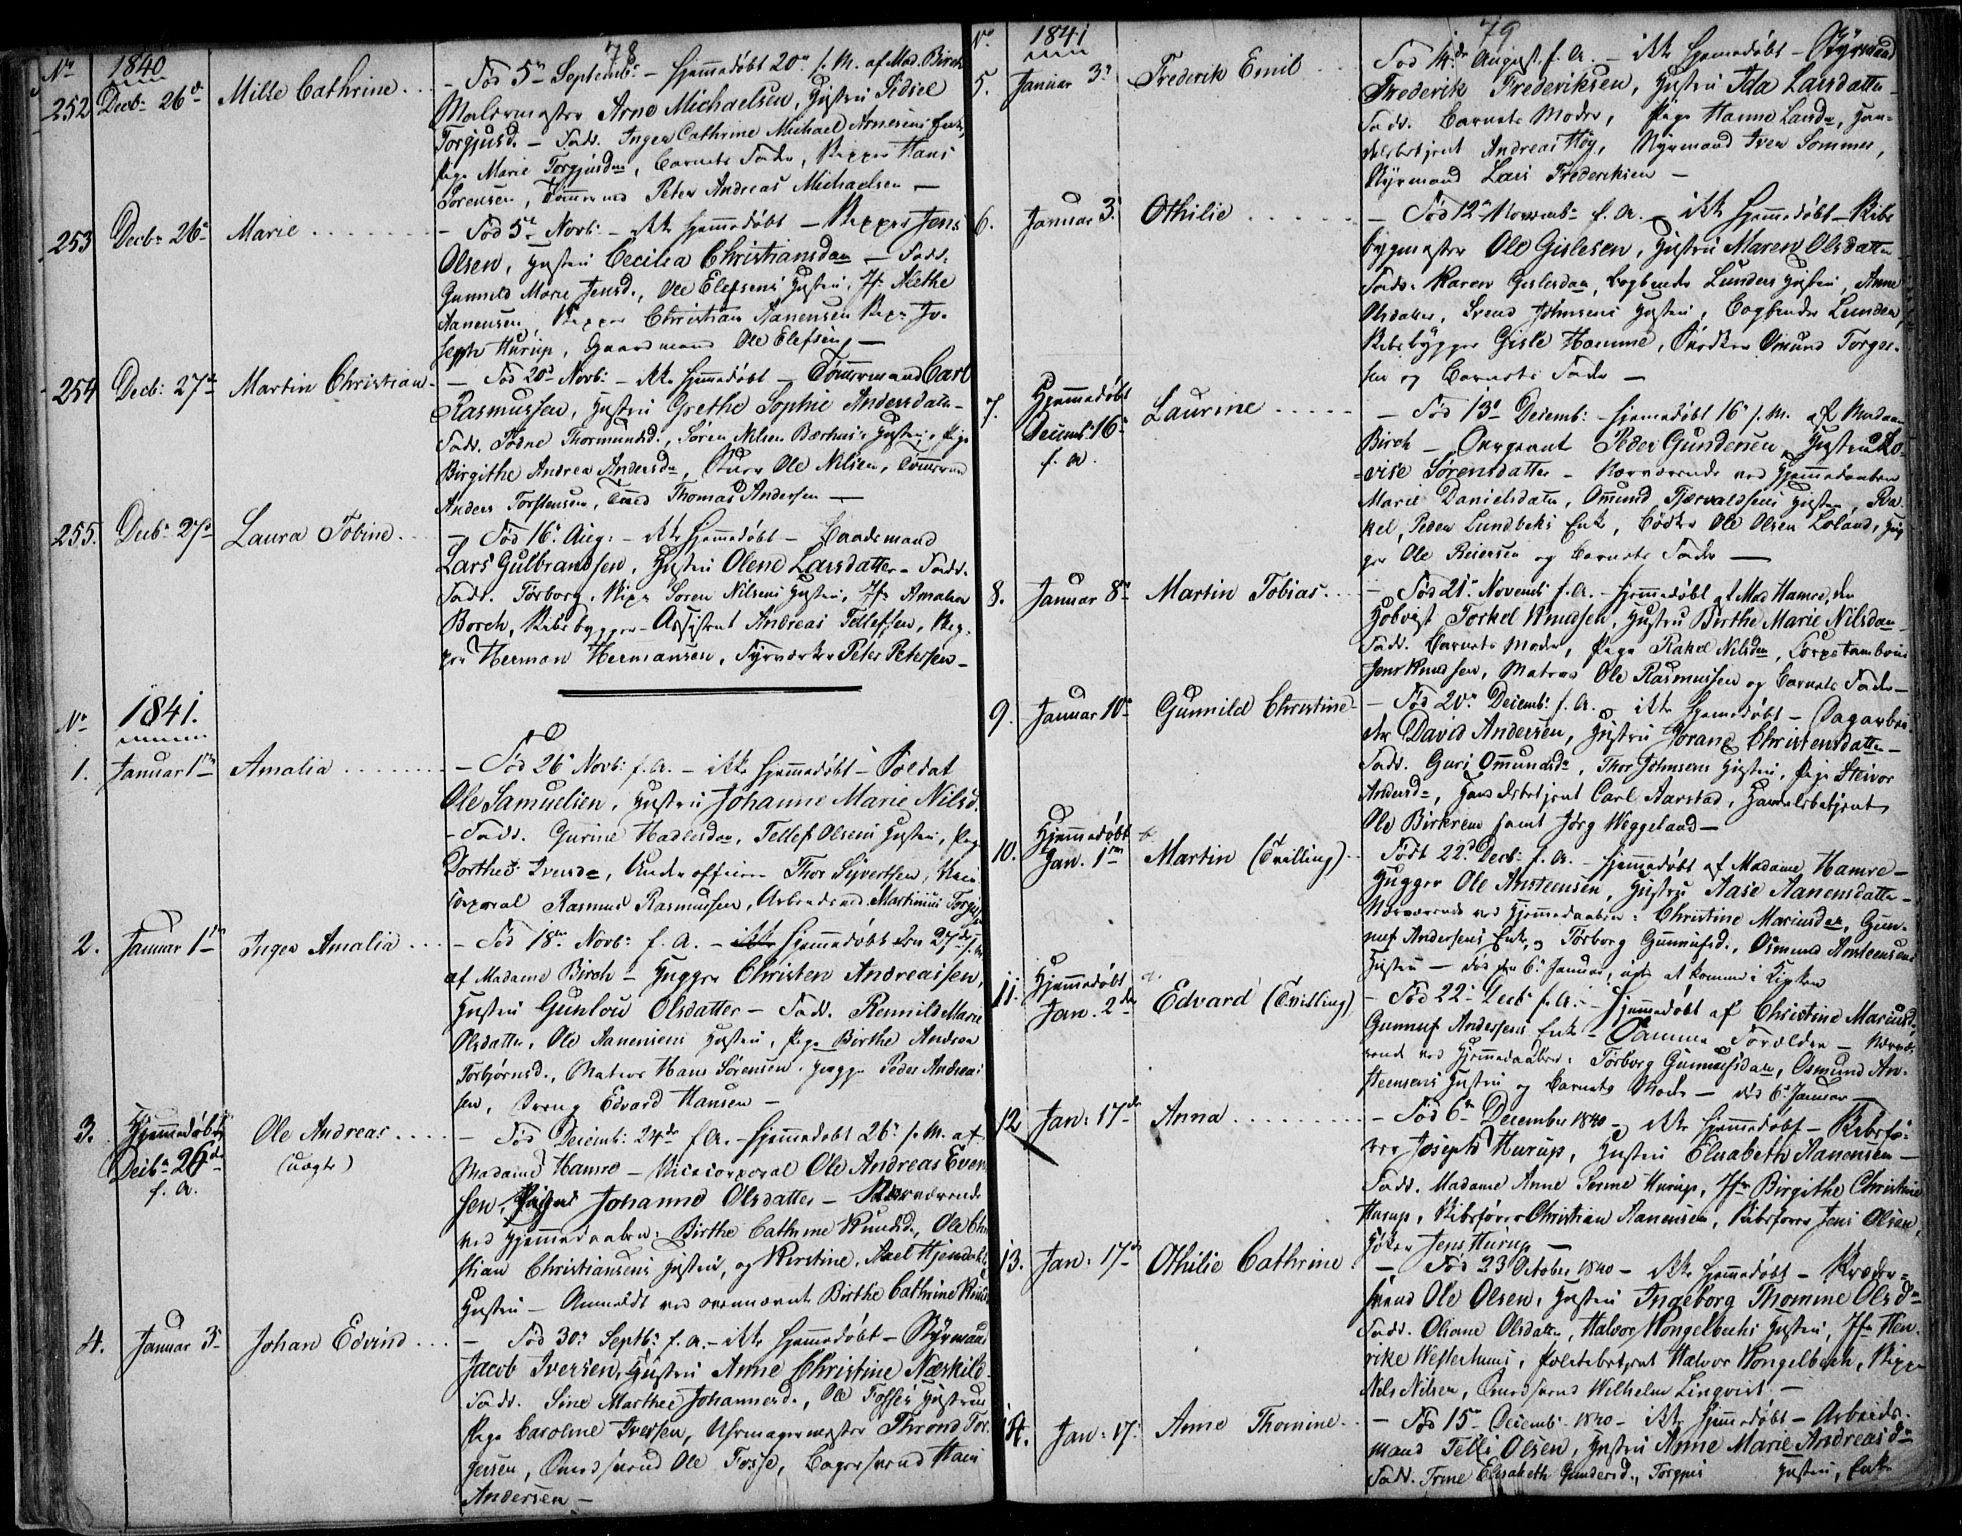 78
No 1840
252 Decbr 26de Mille Cathrine
- Fød 5te Septembr - hjemmedøbt 20de s. M. af Mad. Birch
Malermester Arne Michaelsen, Hustru Sidsel
Torgjusd. - Fadd. Inger Cathrine Michael Arnesens Enke,
Pige Marie Torgjusdr, Barnets Fader, Skipper Hans
Sørensen, Tømmermd Peter Andreas Michaelsen -
253 Decbr 26de Marie
- Fød 5te Novbr - ikke hjemmedøbt - Skipper Jens
Olsen, Hustru Cecilia Christiansdatr - Fadd.
Gunnild Marie Jensd., Ole Elefsens Hustru, Jfr Alethe
Aanensen, Skipper Christian Aanensen Skipr Jo-
seph Hurup, Gaardmand Ole Elefsen -
254 Decbr: 27de Martin Christian
- Fød 20de Novbr: - ikke hjemmedøbt - Tømmermand Carl
Rasmussen, Hustru Grethe Sophie Andersdatter -
Fadd. Thormundsd., Søren Nilsen Hustru, Pige
Birgithe Andrea Andersdr, Ole Nilsen, Tømmermd
Anders Torstensen, Thomas Andersen -
255. Decbr 27de Laura Tobine
- Fød 16de Aug: - ikke hjemmedøbt - Baadsmand
Lars Gulbrandsen, Hustru Olene Larsdatter - Fadd.
Fadd. Torborg, Skipr Søren Nilsens Hustru, Jfr Amalia
Borch, Skibsbygger-Assistent Andreas Tellefsen, Skip-
per Herman Hermansen, Fyrverker Peter Petersen -
No 1841.
1. Januar 1ste Amalia
- Fød 26de Novbr: f. A. - ikke hjemmedøbt - Soldat
Ole Samuelsen, Hustru Johanne Marie Nilsd.
- Fadd. Gurine Hadlersdr, Tellef Olsens Hustru, Pige
Dorthea Iversdr, Underofficeer Thor Sivertsen, Vice-
corporal Rasmus Rasmussen, Arbeidsmd Martinius Torgersen
2. Januar 1ste Inger Amalia
- Fød 18de Novbr: f. A. - ikke hjemmedøbt den 27de s. M.
af Madame Birch - Hugger Christen Andreassen,
Hustru Gunlou Olsdatter - Fadd. Rennild Marie
Olsdatter, Ole Aanensens Hustru, Pige Birthe Andrea
Torbjørnsd., Matros Hans Sørensen, Hugger Peder Andreas-
sen, Dreng Edvard Hansen -
3. Hjemmedøbt Decbr: 26de f. A. Ole Andreas (uægte)
- Fød Decemb: 24de f. A. - hjemmedøbt 26de s. M. af
Madame Hamre - Vicecorporal Ole Andreas Even-
sen, Pigen Johanne Olsdatter - Nærværende
ved Hjemmedaaben: Birthe Cathrine Knudsd., Ole Chri-
stian Christiansens Hustru, og Kirstine, Axel Hjemdahls
Hustru - Anmeldt ved ovennævnte Birthe Cathrine Knuds
4. Januar 3de Johan Edvind
- Fød 30te Septbr: f. A. - ikke hjemmedøbt - Styrmand
Jacob Iversen, Hustru Anne Christine Næskild.
Fadd. Sine Marthea Johannesd., Ole Fosses Hustru
Pige Caroline Iversen, Uhrmagermester Thrond Tor-
gersen, Smedsvend Ole Fosse, Bagersvend Hans
Andersen -
79
No 1841
5. Januar 3de Frederik Emil
Fød 14de August f. A. - ikke hjemmedøbt - Styrmand
Frederik Frederiksen, Hustru Ida Larsdatter -
Fadd. Barnets Moder, Pige Hanne Larsdr, Han-
delsbetjent Andreas Høy, Styrmand Iver Sommer,
Styrmand Lars Frederiksen -
6. Januar 3de Othilie
- Fød 12te Novembr f. A. - ikke hjemmedøbt - Skibs
bygmester Ole Gislesen, Hustru Maren Olsdatter
Fadd. Karen Gislesdatr, Bogbinder Lunders Hustru, Anne
Olsdatter, Svend Johnsens Hustru, Bogbinder Lunder,
Skibsbygger Gisle Hamme, Snedker Omund Torger-
sen og Barnets Fader -
7. Hjemmedøbt Decembr 16de f. A. Laurine
- Fød 13de Decemb: - hjemmedøbt 16de s. M. af Madam
Birch - Sergeant Peder Gundersen Hustru Lo-
vise Sørensdatter - Nærværende ved Hjemmedaaben
Maren Danielsdatr, Omund Tjærvaldsens Hustru, Ra-
kel, Peder Lundbeks Enke, Bødker Ole Olsen Loland, Hug-
ger Ole Reiersen og Barnets Fader -
8. Januar 8de Martin Tobias
- Fød 21de Novemb: f. A. - hjemmedøbt af Mad Hamre, den
Hoboist Torkel Knudsen, Hustru Birthe Marie Nilsdatr
Fadd. Barnets Moder, Pige Rakel Nilsdr, Corpstambour
Jens Knudsen, Matros Ole Rasmussen og Barnets Fader -
9. Januar 10de Gunnild Christine
- Fød 20de Decemb: f. A. - ikke hjemmedøbt - Sagarbei-
der David Andersen, Hustru Gorand Christensdatter -
Fadd. Guri Omundsdr, Thor Johnsens Hustru, Pige Steivor
Andersdr, Handelsbetjent Carl Aarstad, Handelsbetjent
Ole Birkrem samt Jørg Weggeland -
10. Hjemmedøbt Jan. 1ste Martin (Tvilling)
Født 22de Decbr: f. A. - hjemmedøbt af Madame Hamre -
Hugger Ole Arnsteensen, Hustru Aase Aanensdatter -
Nærværende ved Hjemmedaaben: Christine Mariusdr, Gun-
nuf Andersens Enke, og Torborg Gunnufsd., Osmund Arnsteensens
Hustru - død den 6te Januar, uden at komme i Kirken
11. Hjemmedøbt Jan. 2den Edvard (Tvilling)
- Fød 22de Decbr f. A. - hjemmedøbt af Christine Mariusd.
Gunnuf Andersens Enke - Samme Forældre - Nærvæ-
rende ved Hjemmedaaben: Torborg Gunnufsdatr, Osmund Arn-
steensens Hustru og Barnets Moder - død 6te Januar -
12 Jan: 17de Anna
- Fød 6te December 1840 - ikke hjemmedøbt - Skibsfø-
rer Joseph Hurup, Hustru Elisabeth Aanensen -
Fadd. Madame Anne Hurup, Jfr Birgithe Christine
Hurup, Skibsfører Christian Aanensen, Skibsfører Jens Olsen,
Høker Jens Hurup -
13. Jan: 17de Othilie Cathrine
- Fød 23 October 1840 - ikke hjemmedøbt - Skræder-
svend Ole Olsen, Hustru Ingeborg Thomine Olsdr
Fadd. Oliane Olsdatter, Halvor Kongelbechs Hustru, Jfr Hen-
rike Westerhuus, Politibetjent Halvor Kongelbech, Skipr
Nils Nilsen, Smedsvend Wilhelm Linqvist -
14. Jan: 17de Anne Thomine
- Fød 15de Decemb: 1840 - ikke hjemmedøbt - Arbeids-
mand Tellef Olsen, Hustru Anne Marie Andreasdr
Fadd. Trine Elisabeth Gundersd., Torgjus Hustru, Enke